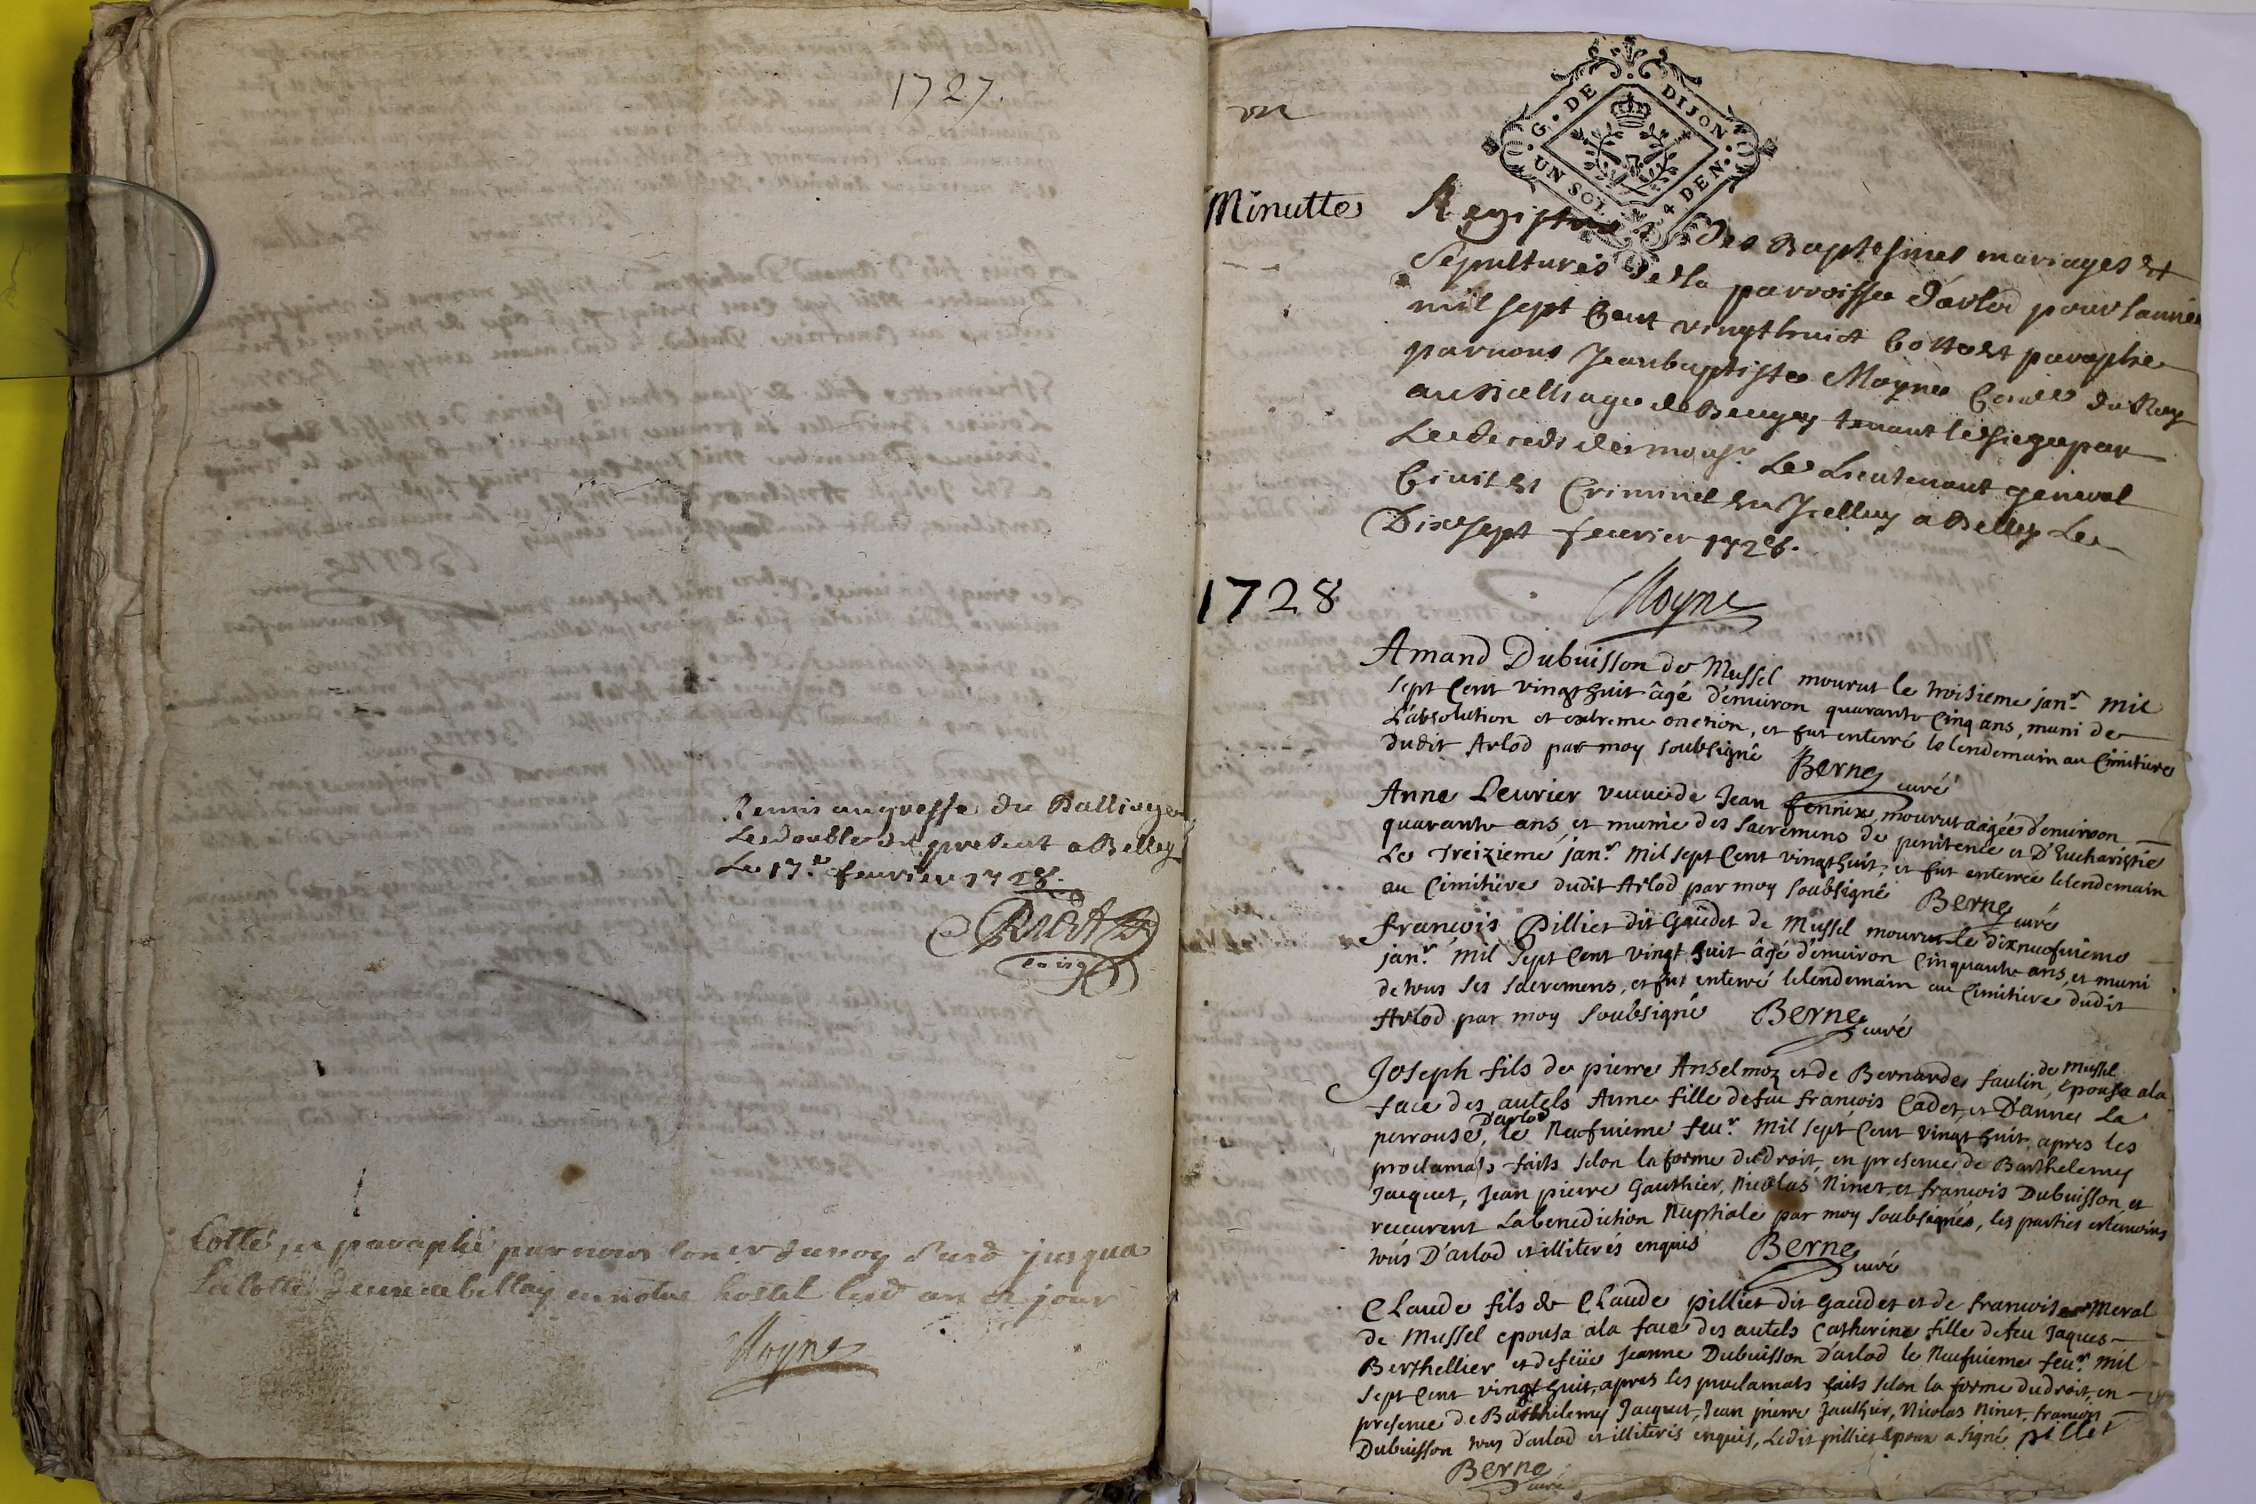 1727.
Remis au greffe du Balliage
Le double du present a Belley
Le 17.e feurier 1728.
Cotté, et paraphé par nous jusqua
hostel an et jour
Moyne
G. DE DIJON
UN SOL 4 DEN.
Minutte
Registre des Baptesmes mariages et
sepultures de la parroisse d'arlod pour l'année
mil sept Cent vingt huict Cotté et paraphé
par nous Jean baptiste Moyne Con.er du Roy
au Balliage de Beugey tenant le siege par
Le deceds de mons.r Le Lieutenant general
Civil et Criminel en Icelluy a Belley Le
Dixsept feurier 1728.
1728
Moyne
Amand Dubuisson de Mussel mourut le troisieme jan.r mil
sept Cent vingt huit âgé d'enuiron quarante Cinq ans, muni de
L'absolution et extreme onction, et fut enterré le lendemain au Cimitiere
dudit Arlod par moy soubsigné Berne curé
Anne Leurier veuue de Jean fenrix, mourut aâgée d'enuiron
quarante ans, et munie des sacremens de penitence et D'Eucharistie
Le Treizieme jan.r mil sept Cent vingt huit, et fut enterrée le lendemain
au Cimitiere dudit Arlod par moy soubsigné Berne curé
françois Pilliet dit Gaudet de Mussel mourut le dixneufuieme
jan.r mil sept Cent vingt huit âgé d'enuiron Cinquante ans, et muni
de tous ses sacremens, et fut enterré le lendemain au Cimitiere dudit
Arlod par moy soubsigné Berne curé
Joseph fils de pierre Anselmoz et de Bernarde faulin, de Mussel epousa ala
face des autels Anne fille de feu françois Cadet, et D'anne La
perrouse, D'arlod le Neufuieme feu.r mil sept Cent vingt huit, apres les
proclamats faits selon la forme du droit, en presence de Barthelemy
Jacquet, Jean pierre Gauthier, Nicolas Ninet, et françois Dubuisson, et
receurent La benediction Nuptiale par moy soubsigné, les parties et temoins
tous D'arlod et illiterés enquis Berne curé
CLaude fils de CLaude pilliet dit Gaudet et de françoise Meral
de Mussel epousa ala face des autels Catherine fille de feu Jaques
Berthellier et de feüe Jeanne Dubuisson D'arlod le Neufuieme feu.r mil
sept Cent vingt huit, apres les proclamats faits selon la forme du droit, en
presence de Barthelemy Jacquet, Jean pierre Gauthier, Nicolas Ninet, françois
Dubuisson tous d'arlod et illiterés enquis, Ledit pilliet Epoux a signé pillet
Berne curé